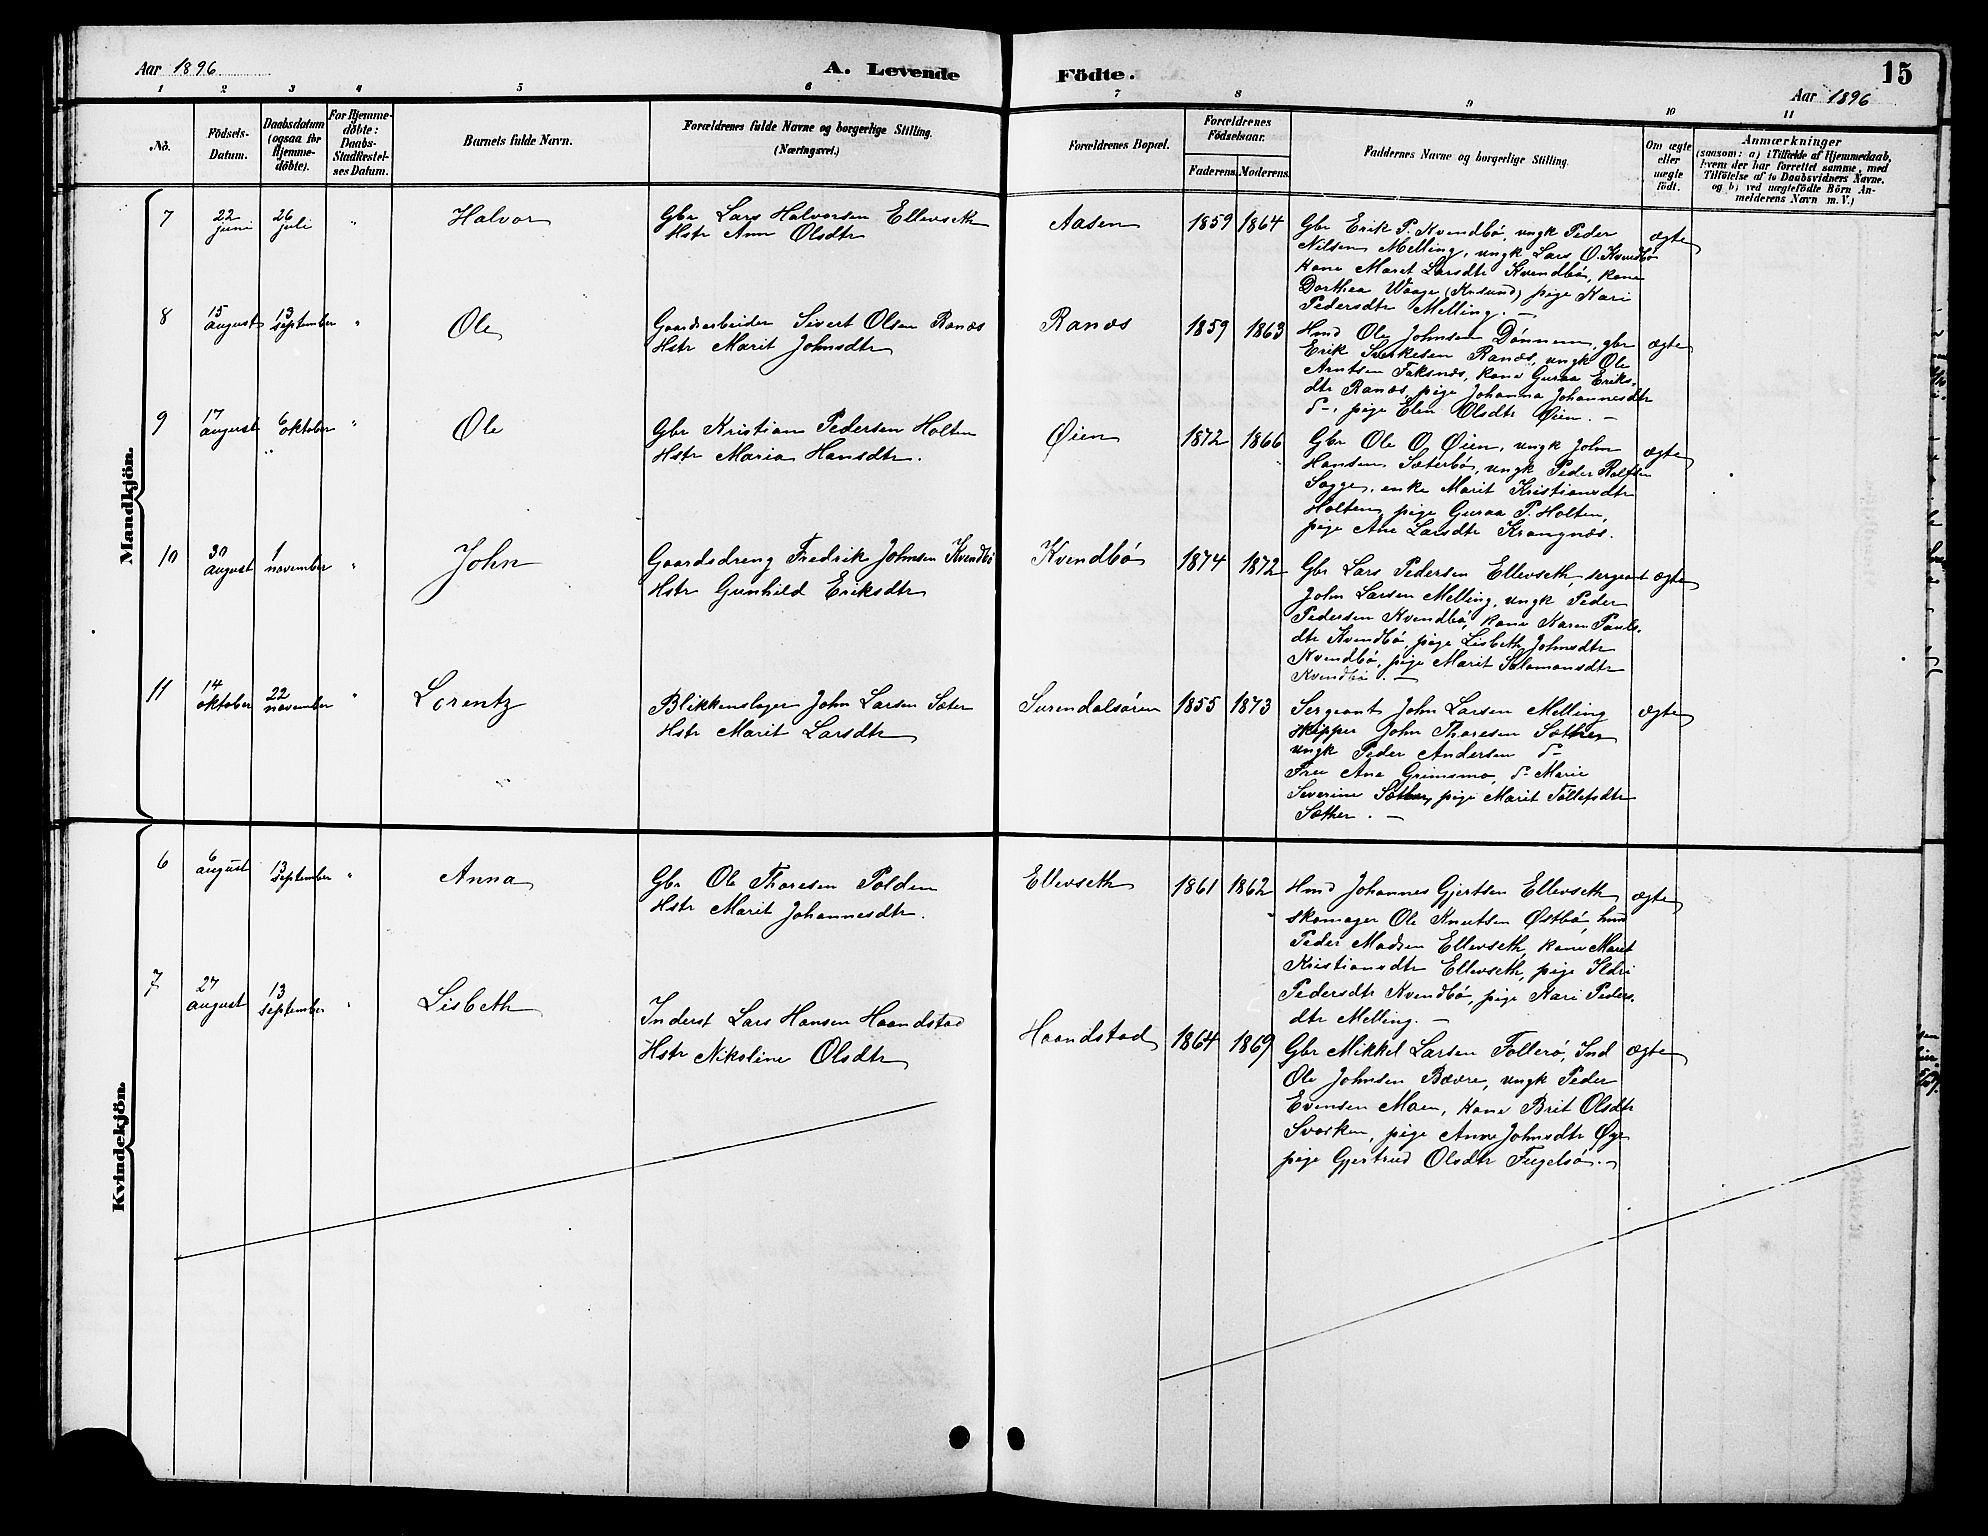 Aar 1896
A. Levende Födte.
15
Aar 1896
1 2 3 4 5 6 7 8 9 10 11
No.
Födsels-
Datum.
Daabsdatum
(ogsaa for
Hjemme-
döbte).
For Hjemme-
döbte:
Daabs-
Stadfæstel-
ses Datum.
Barnets fulde Navn.
Forældrenes fulde Navne og borgerlige Stilling.
(Næringsvei.)
Forældrenes Bopæl.
Forældrenes
Födselsaar.
Faderens. Moderens.
Faddernes Navne og borgerlige Stilling.
Om ægte
eller
uægte
födt.
Anmærkninger
(saasom: a) i Tilfælde af Hjemmedaab,
hvem der har forrettet samme, med
Tilföielse af to Daabsvidners Navne.
og b) ved uægtefödte Börn An-
melderens Navn m. V.)
Mandkjön.
7
22 juni
26 juli
"
Halvor
Gbr Lars Halvorsen Ellevseth
Hstr Ann Olsdtr
Aasen
1859 1864
Gbr Erik P. Kvendbö, ungk Peder
Nilsen Melling, ungk Lars O. Kvendbö
Kone Maret Larsdtr Kvendbö, kone
Dorthea Waage (Krsund) pige Kari
Pedersdtr Melling. —
ægte
8
15 august
13 september
"
Ole
Gaardarbeider Sivert Olsen Ranæs
Hstr Marit Johnsdtr
Ranæs
1859 1863
Hmd Ole Johnsen Dønnem, gbr
Erik Sverkesen Ranæs, ungk Ole
Arntsen Faksnæs, kone Guraa Eriks-
dtr Ranæs, pige Johanna Johannesdtr
d-, pige Elen Olsdtr Øien. —
ægte
9
17 august
6 oktober
"
Ole
Gbr Kristian Pedersen Holten
Hstr Maria Hansdtr.
Øien
1872 1866
Gbr Ole O. Øien, ungk John
Hansen Sæterbö, ungk Peder Rolfsen
Sogge, enke Marit Kristiansdtr
Holten, pige Guraa P. Holten,
pige Ane Larsdtr Krangnæs.
ægte
10
30 august
1 november
"
John
Gaardsdreng Fredrik Johnsen Kvendbö
Hstr Gunhild Eriksdtr
Kvendbö
1874 1872
Gbr Lars Pedersen Ellevseth, sergeant
John Larsen Melling, ungk Peder
Pedersen Kvendbö, kone Karen Pauls-
dtr Kvendbö, pige Lisbeth Johnsdtr
Kvendbö, pige Marit Salamonsdtr
Kvendbö. —
ægte
11
14 oktober
22 november
"
Lorentz
Blikkenslager John Larsen Sæter
Hstr Marit Larsdtr
Surendalsören
1855 1873
Sergeant John Larsen Melling
skipper John Thoresen Sæther
ungk Peder Andersen d-
Frue Ane Grimsmo, d- Marie
Severine Sæther, pige Marit Tollefsdtr
Sæther. —
ægte
Kvindekjön.
6
6 august
13 september
"
Anna
Gbr Ole Thoresen Polden
Hstr Marit Johannesdtr.
Ellevseth
1861 1862
Hmd Johannes Gjertsen Ellevseth
skomager Ole Knutsen Østbö, hmd
Peder Madsen Ellevseth, kone Maret
Kristiansdtr Ellevseth, pige Ildri
Pedersdtr Kvendbö, pige Kari Peders-
dtr Melling. —
ægte
7
27 august
13 september
"
Lisbeth
Inderst Lars Hansen Haandstad
Hstr Nikoline Olsdtr
Haandstad
1864 1869
Gbr Mikkel Larsen Follerö, Ind
Ole Johnsen Bævre, ungk Peder
Evensen Moen, kone Brit Olsdtr
Svorken, pige Anne Johnsdtr Øye
pige Gjertrud Olsdtr Fugelsö. —
ægte